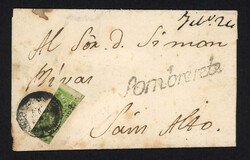 Feb.o 24
Al Sór. d. Simon
Rivas
Sombrerete
Sain Alto.